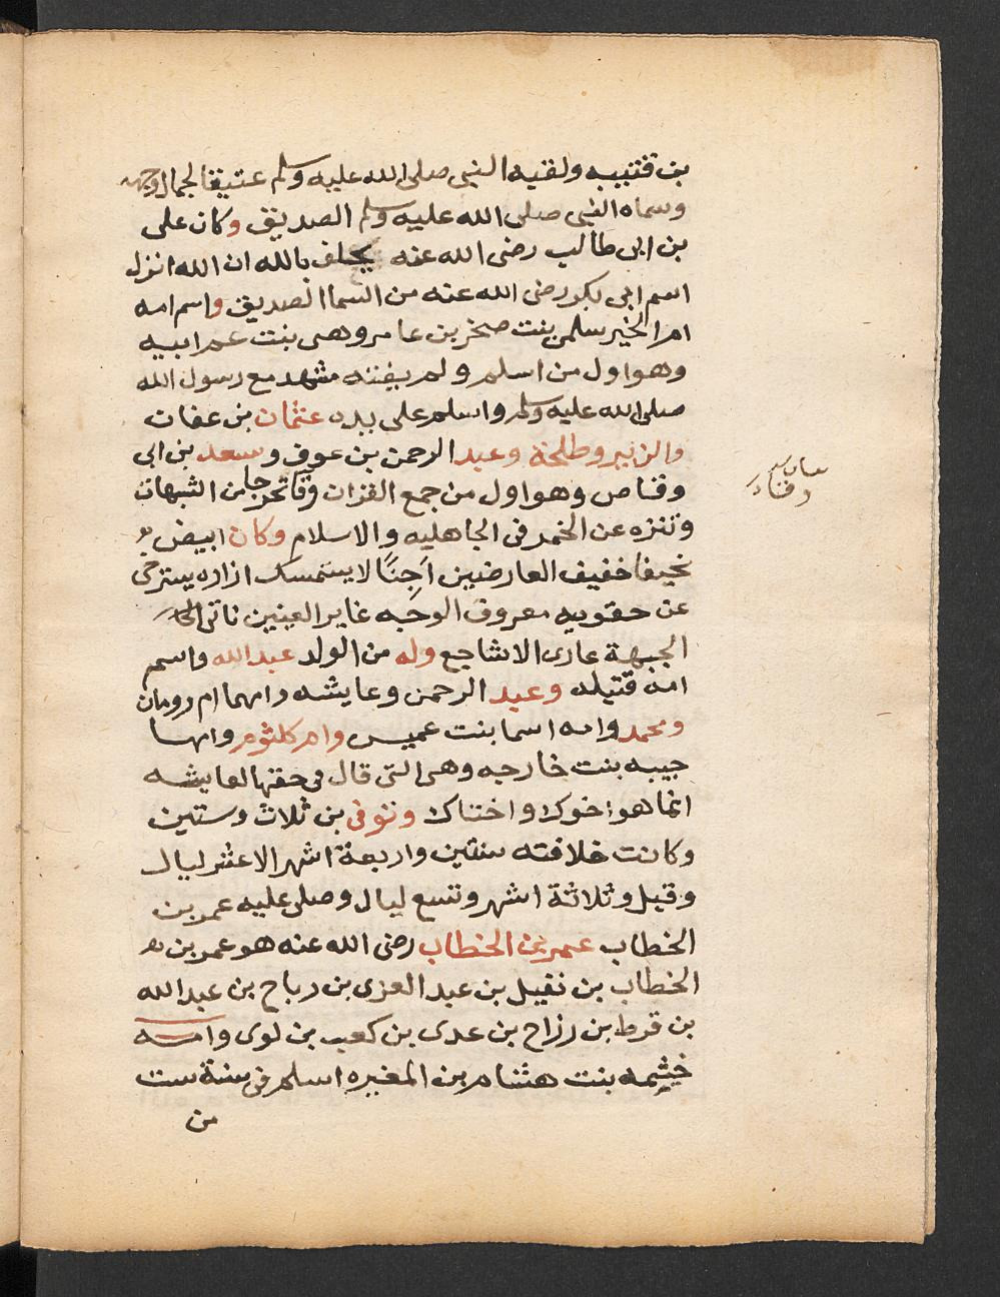 بن قتيبه ولقيه النبى صلى الله عليه وسلم عتيقا لجمال وجهه
وسماه النبى صلى الله عليه وسلم الصديق وكان على
بن ابى طالب رضى الله عنه يحلف بالله ان الله انزل
اسم ابى بكر رضى الله عنه من السما الصديق واسم امه
ام الخير سلمى بنت صخر بن عامر وهى بنت عم ابيه
وهو اول من اسلم ولم يفته مشهد مع رسول الله
صلى الله عليه وسلم واسلم على يده عثمان بن عفان
والزبير وطلحة وعبد الرحمن بن عوف وسعد بن ابى
وقاص وهو اول من جمع القران وتحرجا من الشبهات
وتنزه عن الخمر فى الجاهليه والاسلام وكان ابيض
نحيفا خفيف العارضين اجنًا لا يستمسك ازاره يسترخى
عن حقويه معروق الوجه غاير العينين ناتى
الجبهة عارى الاشاجع وله من الولد عبد الله واسم
امه قتيله وعبد الرحمن وعايشه وامهما ام رومان
ومحمد وامه اسما بنت عميس وام كلثوم وامها
حبيبه بنت خارجه وهى التى قال فى حقها لعايشه
انما هو اخوك واختاك وتوفى بن ثلاث وستين
وكانت خلافته سنتين واربعة اشهر الا عشر ليال
وقيل وثلاثة اشهر وتسع ليال وصلى عليه عمر بن
الخطاب عمر بن الخطاب رضى الله عنه هو عمر بن
الخطاب بن نفيل بن عبد العزى بن رباح بن عبد الله
بن قرط بن رزاح بن عدى بن كعب بن لوى وامه
خيثمه بنت هشام بن المغيره اسلم فى سنة ست
من